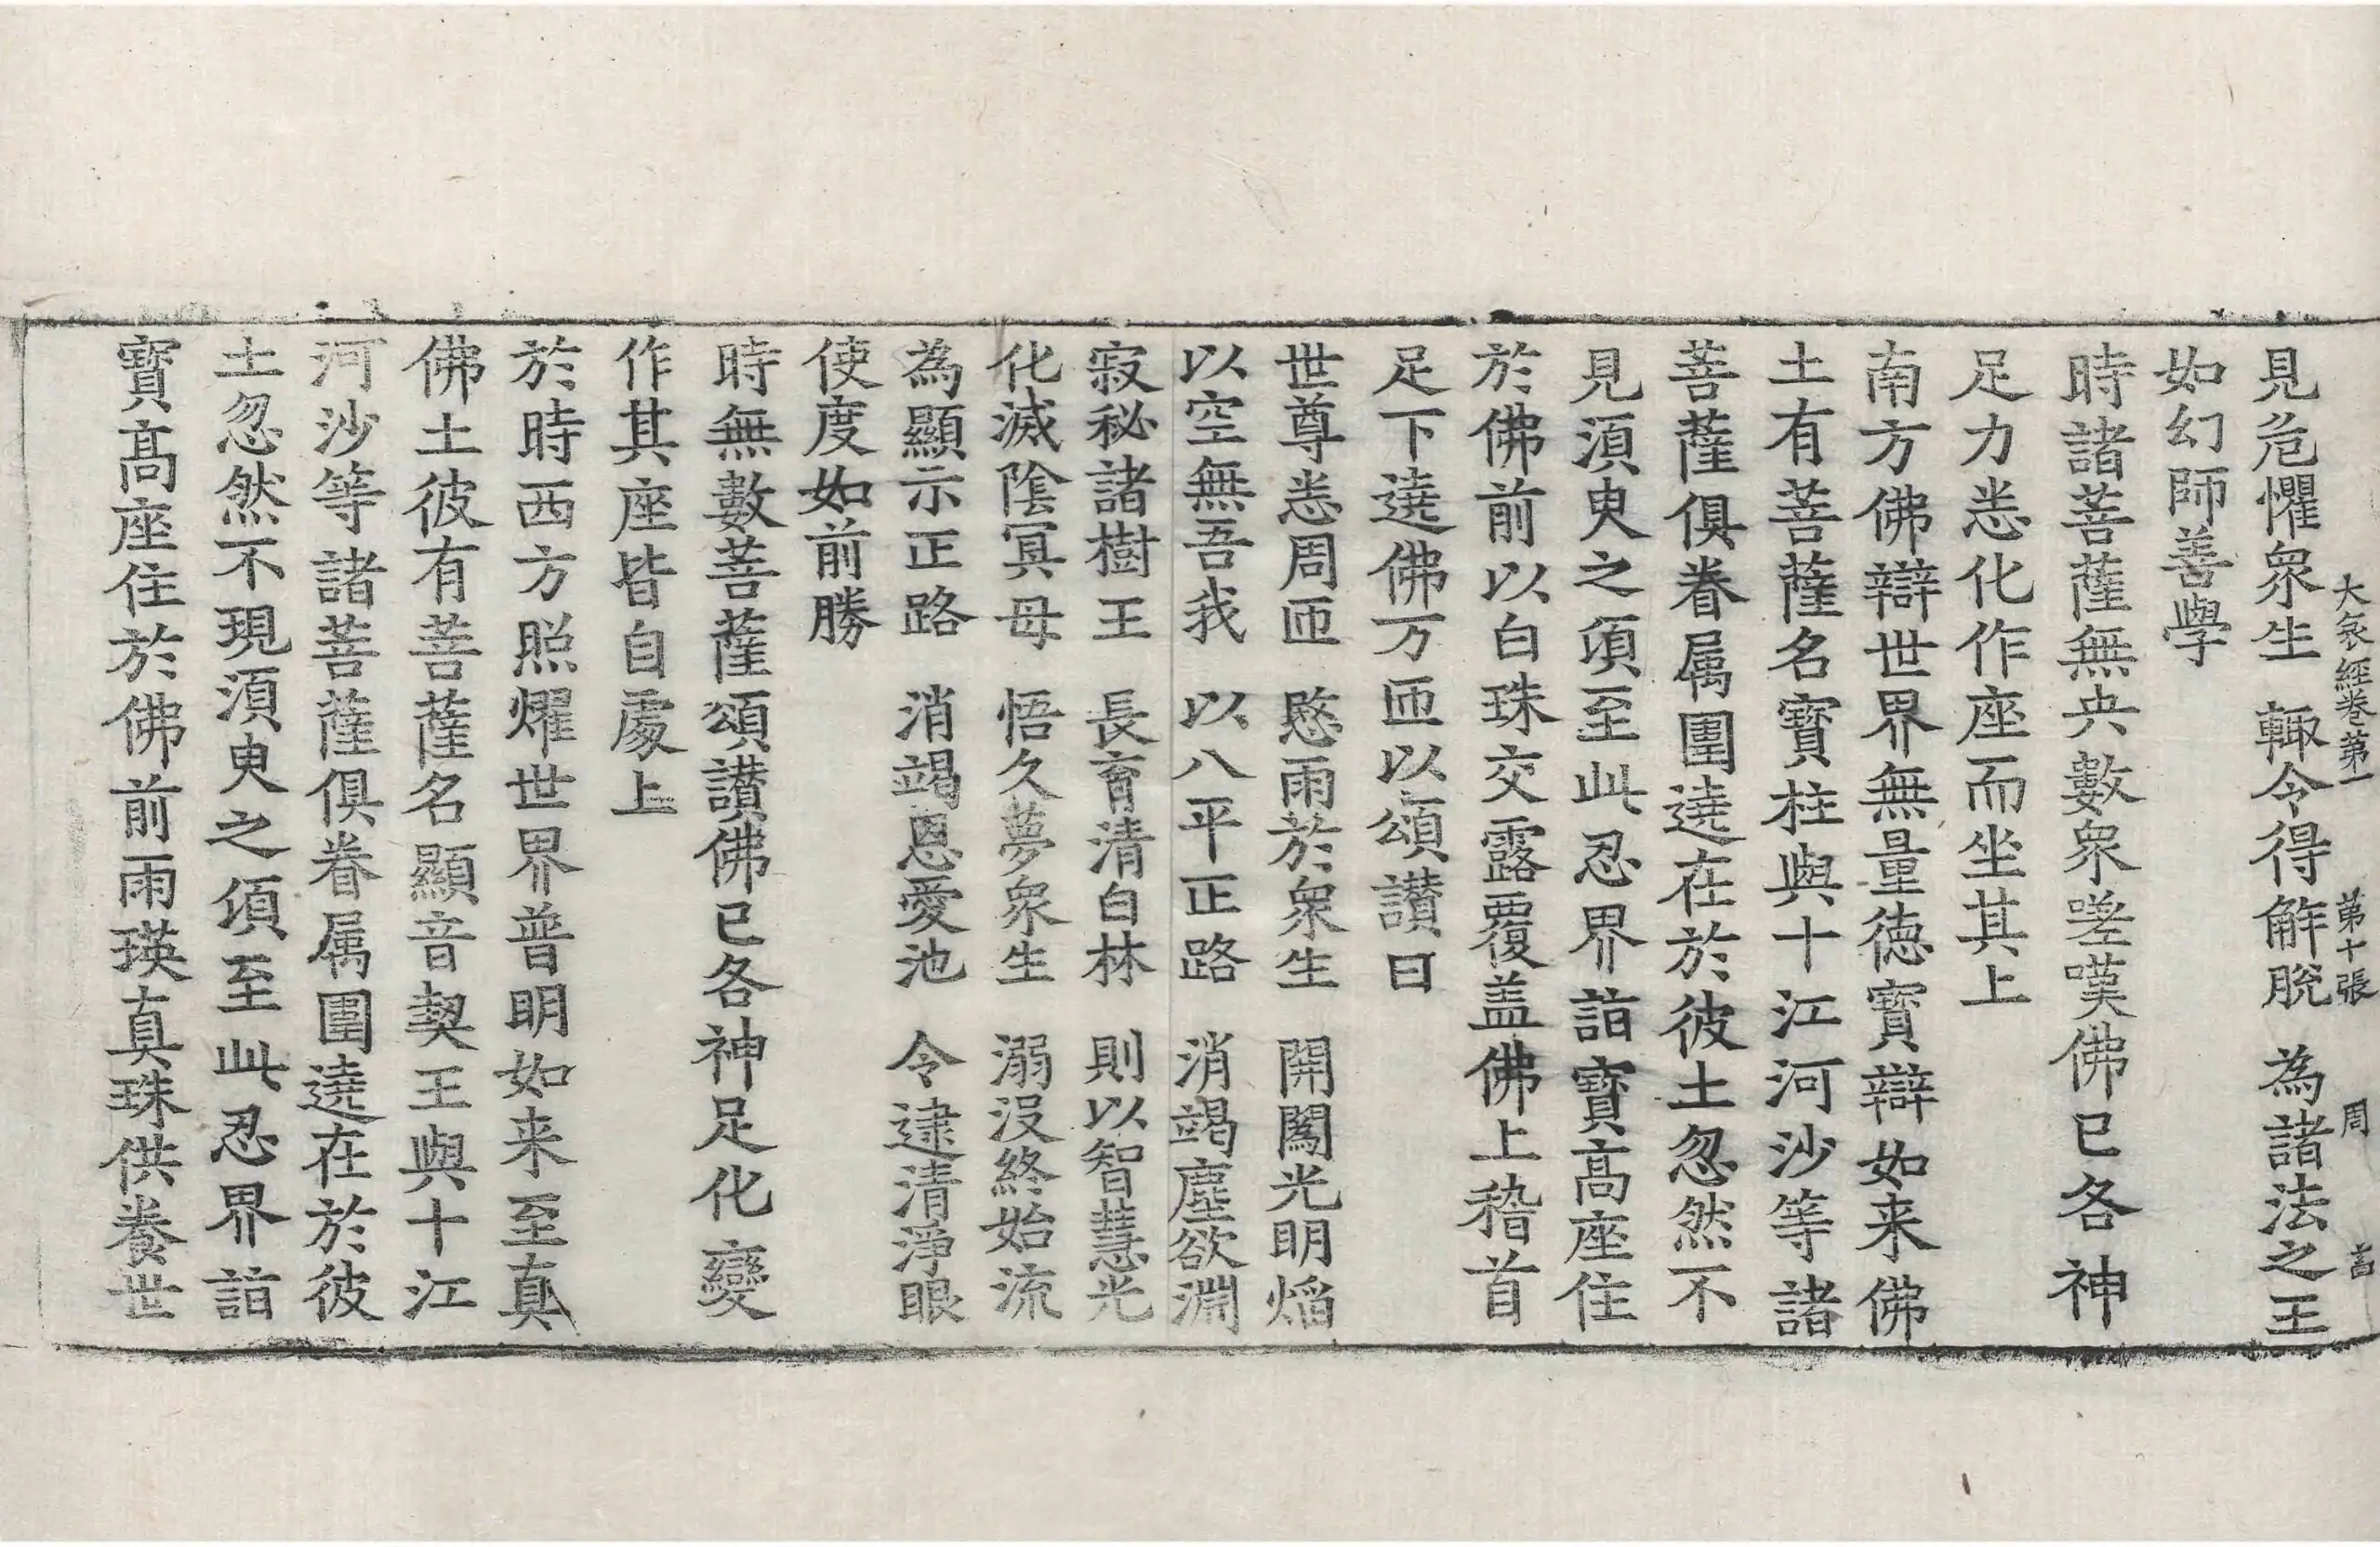 大哀經卷第一 第十張 周 言
見危懼衆生 輙令得解脫 為諸法之王
如幻師善學
時諸菩薩無央數衆嗟嘆佛已各神
足力悉化作座而坐其上
南方佛辯世界無量德寶辯如来佛
土有菩薩名寶柱與十江河沙等諸
菩薩俱眷属圍遶在於彼土忽然不
見湏臾之頃至此忍界詣寶髙座住
於佛前以白珠交露覆盖佛上稽首
足下遶佛万匝以頌讃曰
世尊悉周匝 愍雨於衆生 開闡光明焰
以空無吾我 以八平正路 消竭塵欲淵
寂秘諸樹王 長育清白林 則以智慧光
化滅陰冥母 悟久夢衆生 溺没終始流
為顯示正路 消竭恩愛池 令逮清淨眼
使度如前勝
時無數菩薩頌讃佛已各神足化變
作其座皆自處上
於時西方照燿世界普明如来至真
佛土彼有菩薩名顯音契王與十江
河沙等諸菩薩俱眷属圍遶在於彼
土忽然不現湏臾之頃至此忍界詣
寶髙座住於佛前雨瑛真珠供養世